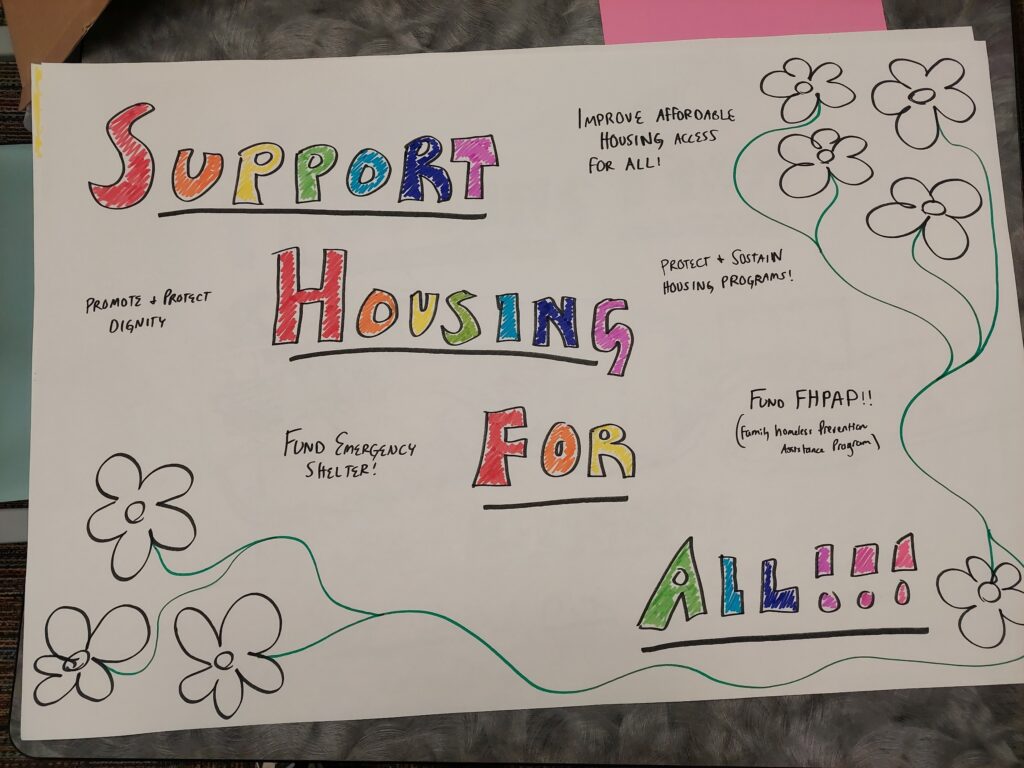 SUPPORT
IMPROVE AFFORDABLE
HOUSING ACCESS
FOR ALL!
HOUSING
PROMOTE + PROTECT
DIGNITY
PROTECT + SUSTAIN
HOUSING PROGRAMS!
FOR
FUND EMERGENCY
SHELTER!
FUND FHPAP!!
(Family homeless Prevention
Assistance Program)
ALL!!!